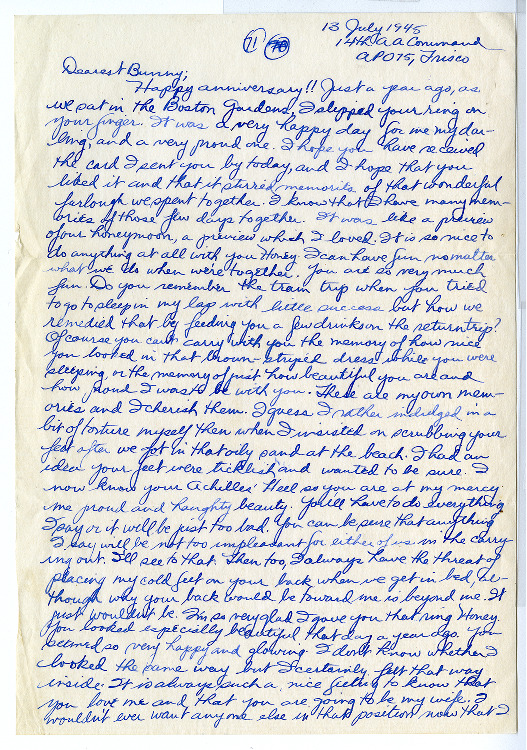 71
13 July 1945
14th AA Command
APO 75, Frisco
Dearest Bunny,
Happy anniversary!! Just a year ago, as
we sat in the Boston Gardens, I slipped your ring on
your finger. It was a very happy day for me my dar-
ling, and a very proud one. I hope you have received
the card I sent you by today, and I hope that you
liked it and that it stirred memories of that wonderful
furlough we spent together. I know that I have many mem-
ories of those few days together. It was like a preview
of our honeymoon, a preview which I loved. It is so nice to
do anything at all with you Honey. I can have fun no matter
what we do when we're together. You are so very much
fun. Do you remember the train trip when you tried
to go to sleep in my lap with little success but how we
remedied that by feeding you a few drinks on the return trip?
Of course you can't carry with you the memory of how nice
you looked in that brown-striped dress while you were
sleeping, or the memory of just how beautiful you are and
how proud I was to be with you. These are my own mem-
ories and I cherish them. I guess I rather indulged in a
bit of torture myself then when I insisted on scrubbing your
feet after we got in that oily sand at the beach. I had an
idea your feet were ticklish and wanted to be sure. I
now know your Achilles' Heel so you are at my mercy
me proud and haughty beauty. You'll have to do everything
I say or it will be just too bad. You can be sure that anything
I say will be not too unpleasant for either of us in the carry-
ing out. I'll see to that. Then too, I always have the threat of
placing my cold feet on your back when we get in bed, al-
though why your back would be toward me is beyond me. It
just wouldn't be. I'm so very glad I gave you that ring Honey.
You looked especially beautiful that day a year ago. You
seemed so very happy and glowing. I don't know whether I
looked the same way but I certainly felt that way
inside. It is always such a nice feeling to know that
you love me and that you are going to be my wife. I
wouldn't ever want anyone else in that position now that I